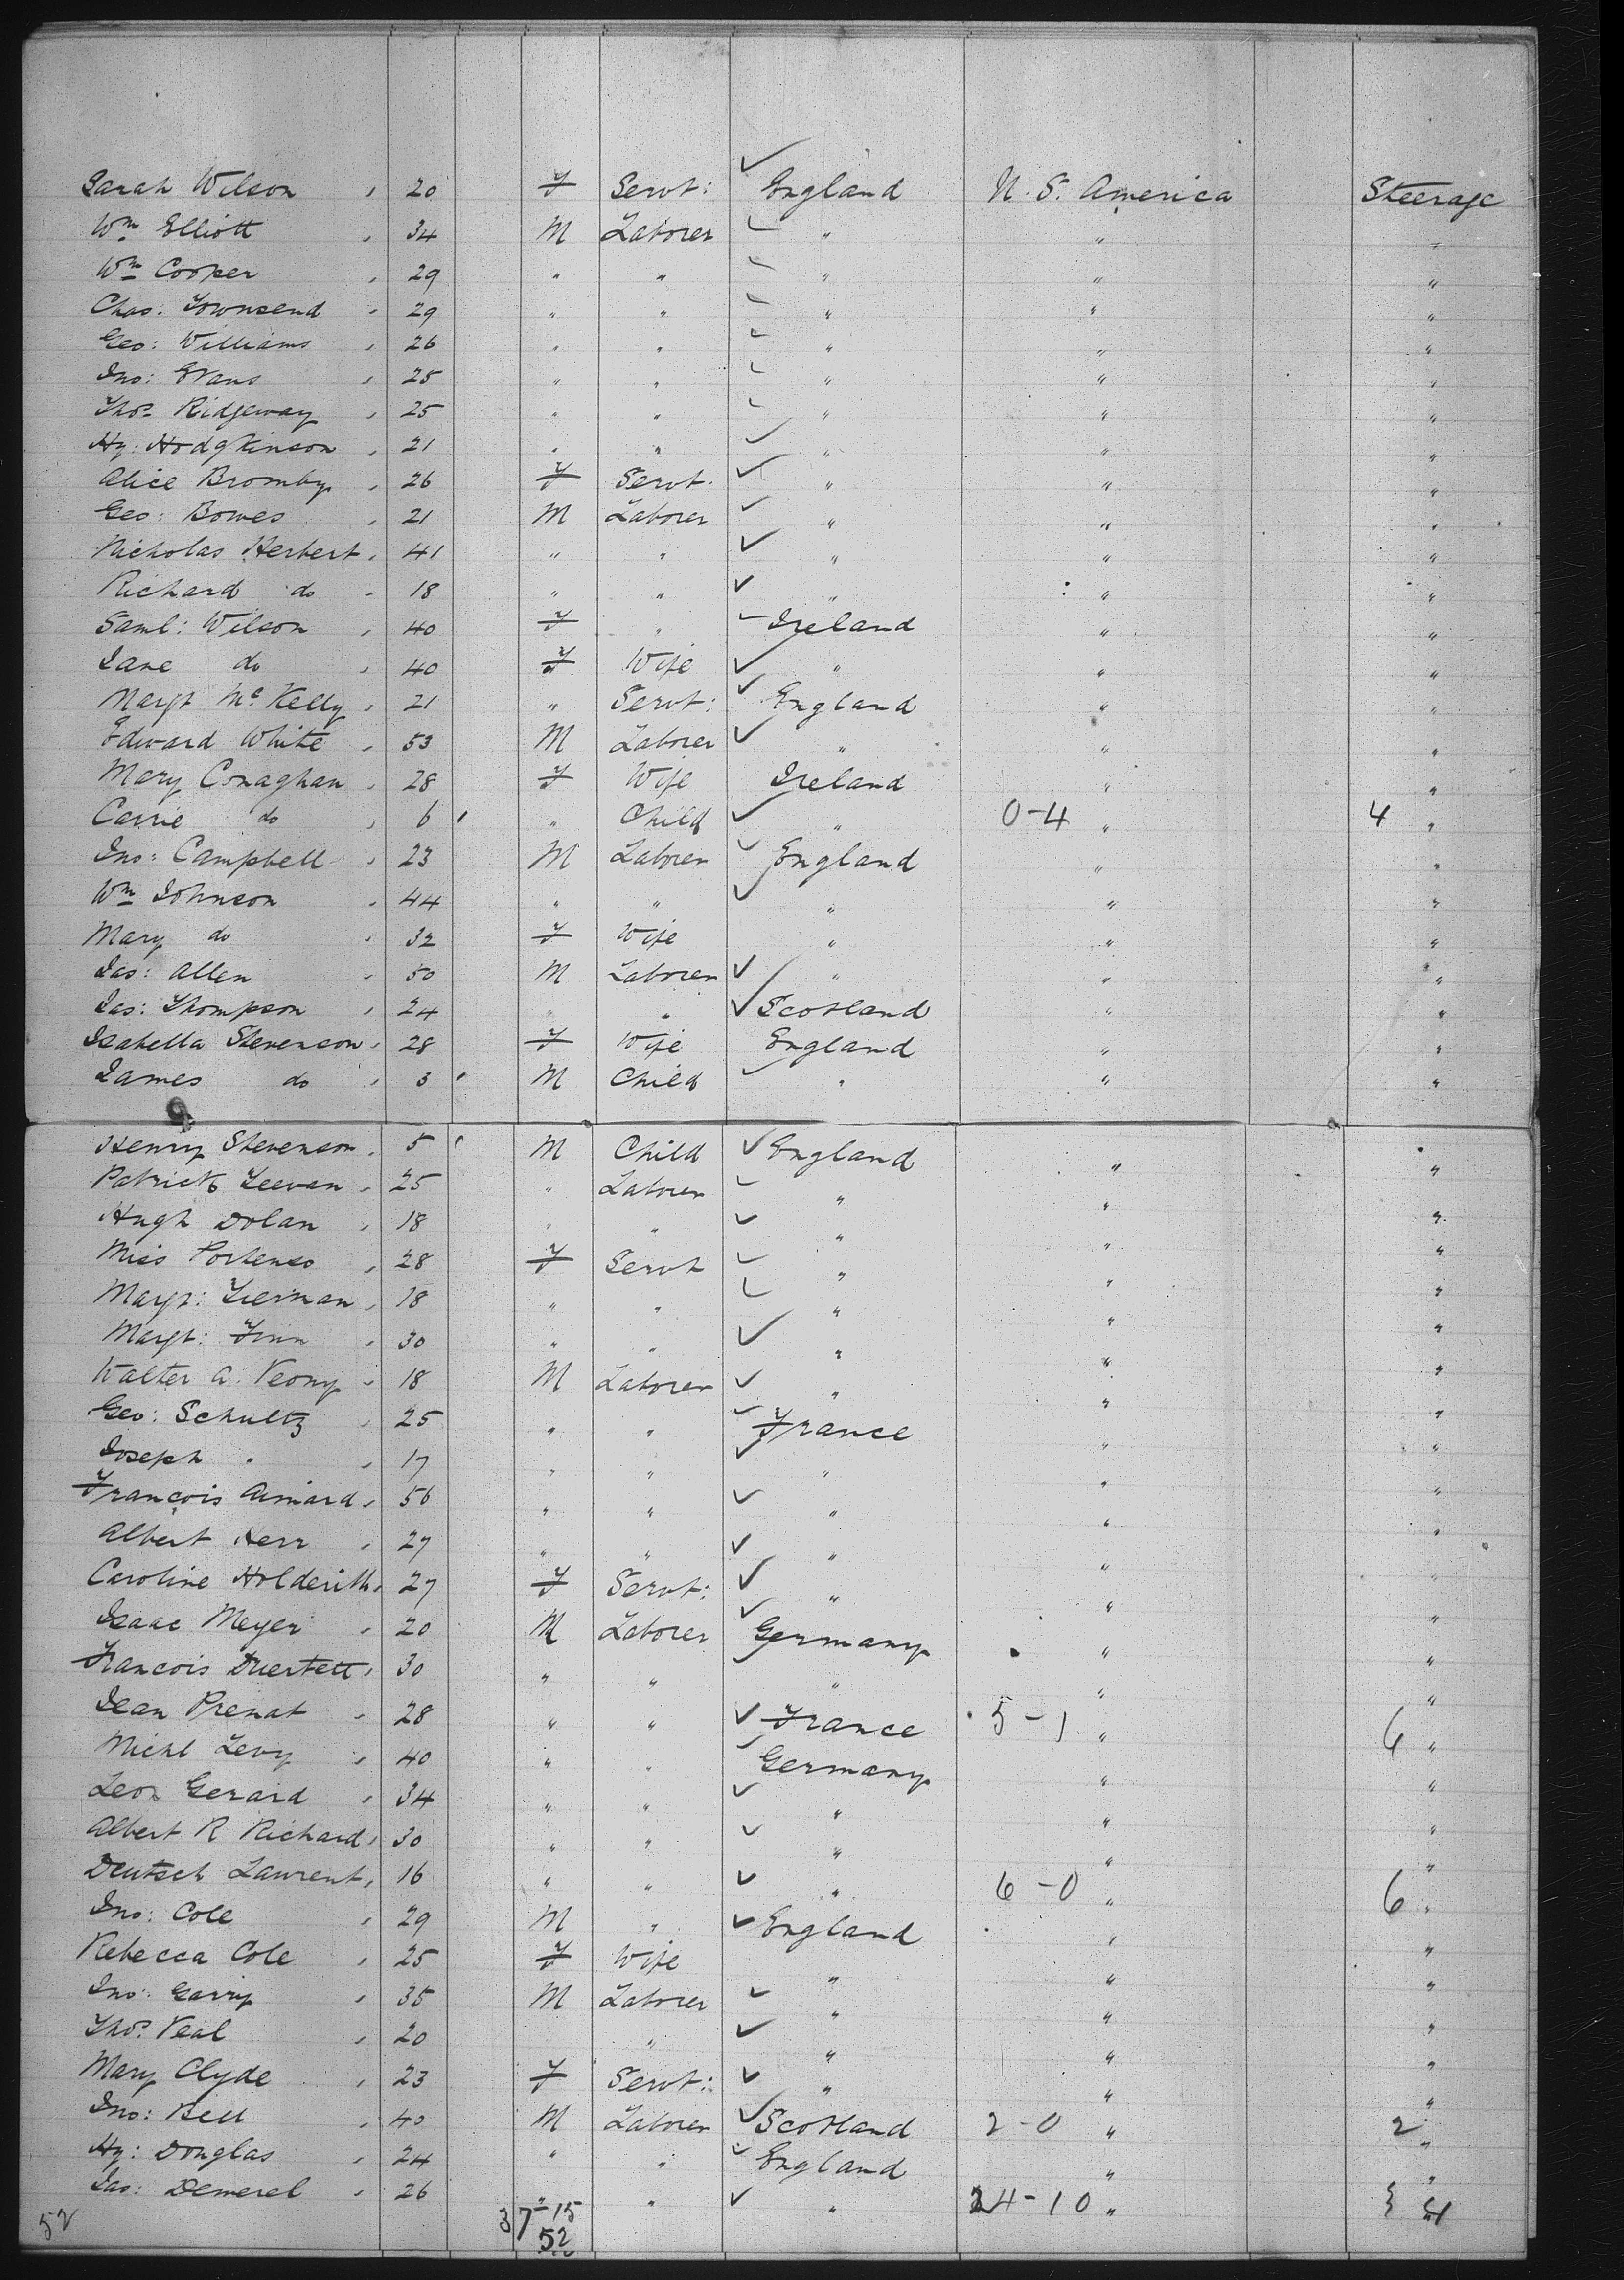 Sarah Wilson , 20 F Servt: England U. S. America Steerage
Wm Elliott , 34 M Laborer " " "
Wm Cooper , 29 " " " " "
Chas: Townsend , 29 " " " " "
Geo: Williams , 26 " " " " "
Jno: Evans , 25 " " " " "
Thos Ridgeway , 25 " " " " "
Hy: Hodgkinson , 21 " " " " "
Alice Bromby , 26 F Servt. " " "
Geo: Bowes , 21 M Laborer " " "
Nicholas Herbert , 41 " " " " "
Richard do , 18 " " " " "
Saml: Wilson , 40 F " Ireland " "
Jane do , 40 F Wife " " "
Margt McKelly , 21 " Servt: England " "
Edward White , 53 M Laborer " " "
Mary Conaghan , 28 F Wife Ireland " "
Carrie do , 6 ' " Child " 0-4 " 4 "
Jno: Campbell , 23 M Laborer England " "
Wm Johnson , 44 " " " " "
Mary do , 32 F Wife " " "
Jas: Allen , 50 M Laborer " " "
Jas: Thompson , 24 " " Scotland " "
Isabella Stevenson , 28 F Wife England " "
James do , 3 ' M Child " " "
Henry Stevenson , 5 ' M Child England " "
Patrick Leevan , 25 " Laborer " " "
Hugh Dolan , 18 " " " " "
Miss Portenso , 28 F Servt " " "
Margt: , 18 " " " " "
Margt: Finn , 30 " " " " "
Walter A. , 18 M Laborer " " "
Geo: Schultz , 25 " " France " "
Joseph " , 17 " " " " "
François Aimard , 56 " " " " "
Albert Herr , 27 " " " " "
Caroline Holderith , 27 F Servt: " " "
Isaac Meyer , 20 M Laborer Germany " "
Francois , 30 " " " " "
Jean Prenat , 28 " " France 5-1 " 6 "
Michl Levy , 40 " " Germany " "
Leon Gerard , 34 " " " " "
Albert R Richard , 30 " " " " "
Deutsch Laurent , 16 " " " 6-0 " 6 "
Jno: Cole , 29 M " England " "
Rebecca Cole , 25 F Wife " " "
Jno: Garry , 35 M Laborer " " "
Thos Veal , 20 " " " "
Mary Clyde , 23 F Servt: " " "
Jno: Bell , 40 M Laborer Scotland 2-0 " 2 "
Hy: Douglas , 24 " " England " "
Jas: Demerel , 26 " " " 24-10 " "
52 37-15
52